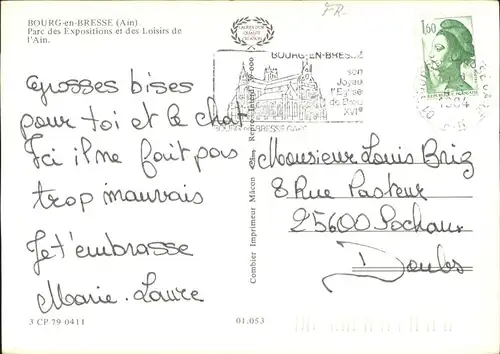 BOURG-en-BRESSE (Ain)
Parc des Expositions et des Loisirs de
l'Ain.
Grosses bises
pour toi et le chat
Ici il ne fait pas
trop mauvais
Je t'embrasse
Marie-Laure
3 CP 79 0411
01.053
Combier Imprimeur Mâcon
FR.
BOURG-EN-BRESSE
son
Joyau
l'Eglise
de Brou
XVIe
1,60
1984
Monsieur Louis Briz
8 Rue Pasteur
25600 Sochaux
Doubs